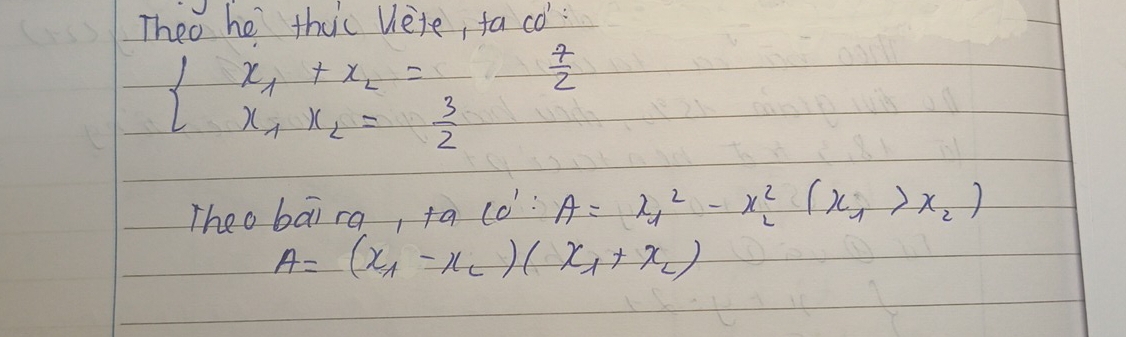 Theo hệ thức Viète, ta có:
{ x₁ + x₂ = 7/2
x₁ x₂ = 3/2
Theo bài ra, ta có: A = x₁² - x₂² (x₁ > x₂)
A = (x₁ - x₂)(x₁ + x₂)